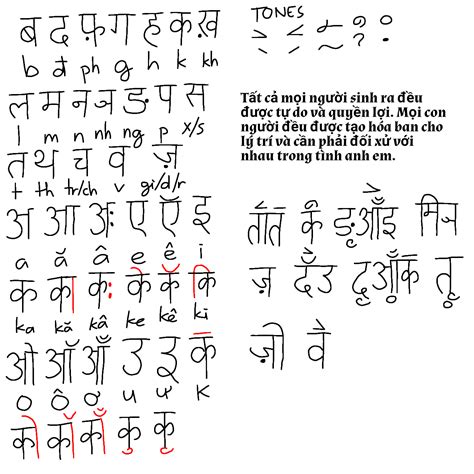 ब द फ़ ग ह क ख़
b đ ph g h k kh
ल म न ञ ङ प स
l m n nh ng p x/s
त थ च व ज़
t th tr/ch v gi/d/r
अ आ अः ए ऍ इ
a ă â e ê i
क का कः के कॅ कि
ka kă kâ ke kê ki
ओ ऑ आँ उ इ क
o ô ơ u ư K
को कॉ काँ कु कृ
TONES
Tất cả mọi người sinh ra đều
được tự do và quyền lợi. Mọi con
người đều được tạo hóa ban cho
lý trí và cần phải đối xử với
nhau trong tình anh em.